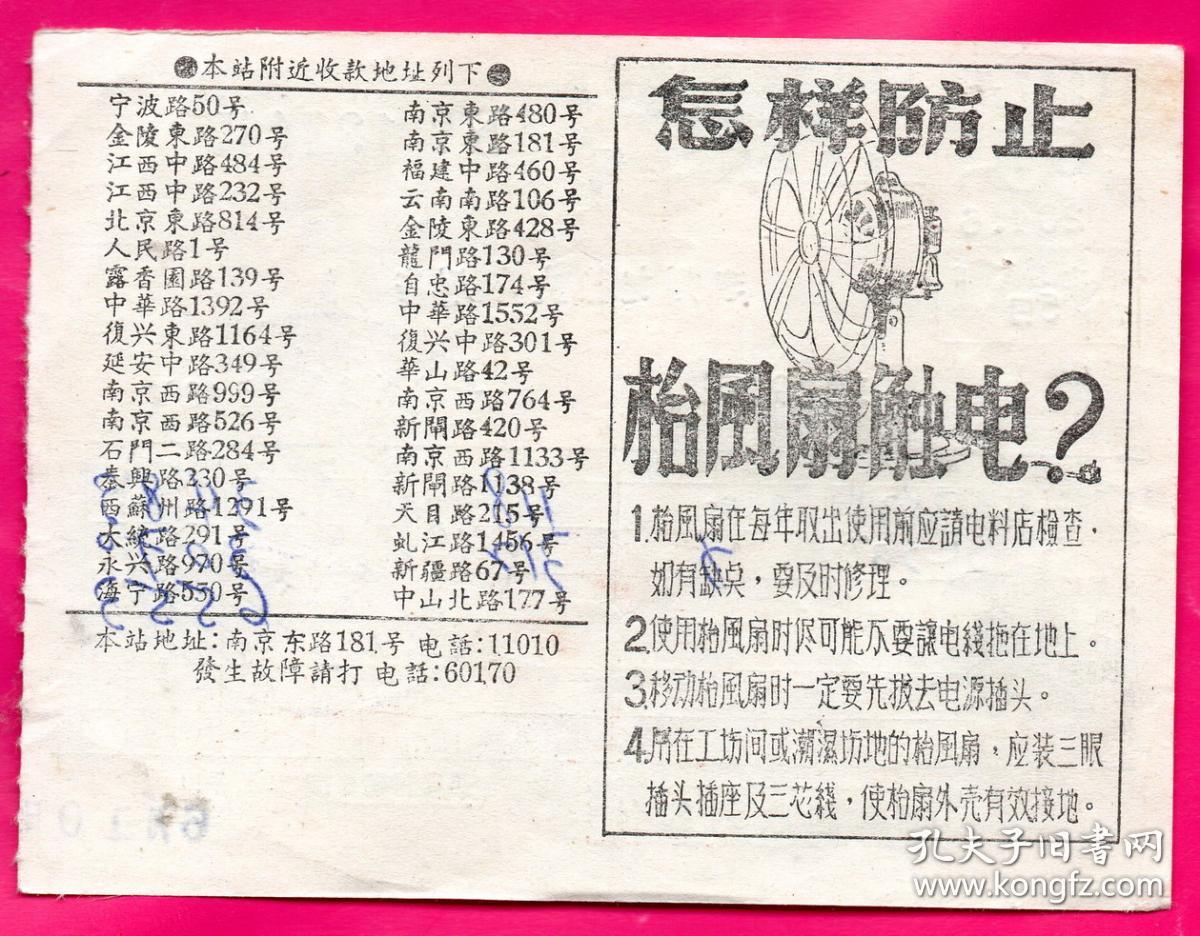 本站附近收款地址列下
宁波路50号
金陵東路270号
江西中路484号
江西中路232号
北京東路814号
人民路1号
露香園路139号
中華路1392号
復兴東路1164号
延安中路349号
南京西路999号
南京西路526号
石門二路284号
泰興路230号
西蘇州路1291号
大統路291号
永兴路970号
海宁路550号
南京東路480号
南京東路181号
福建中路460号
云南南路106号
金陵東路428号
龍門路130号
自忠路174号
中華路1552号
復兴中路301号
華山路42号
南京西路764号
新閘路420号
南京西路1133号
新閘路1138号
天目路215号
虬江路1456号
新疆路67号
中山北路177号
本站地址:南京东路181号 电話:11010
發生故障請打 电話:60170
怎样防止
枱風扇触电?
1.枱風扇在每年取出使用前应請电料店檢查,
如有缺点,要及时修理。
2.使用枱風扇时尽可能不要讓电綫拖在地上。
3.移动枱風扇时一定要先拔去电源插头。
4.用在工坊间或潮濕场地的枱風扇,应装三眼
插头插座及三芯綫,使枱扇外壳有效接地。
孔夫子旧书网
www.kongfz.com